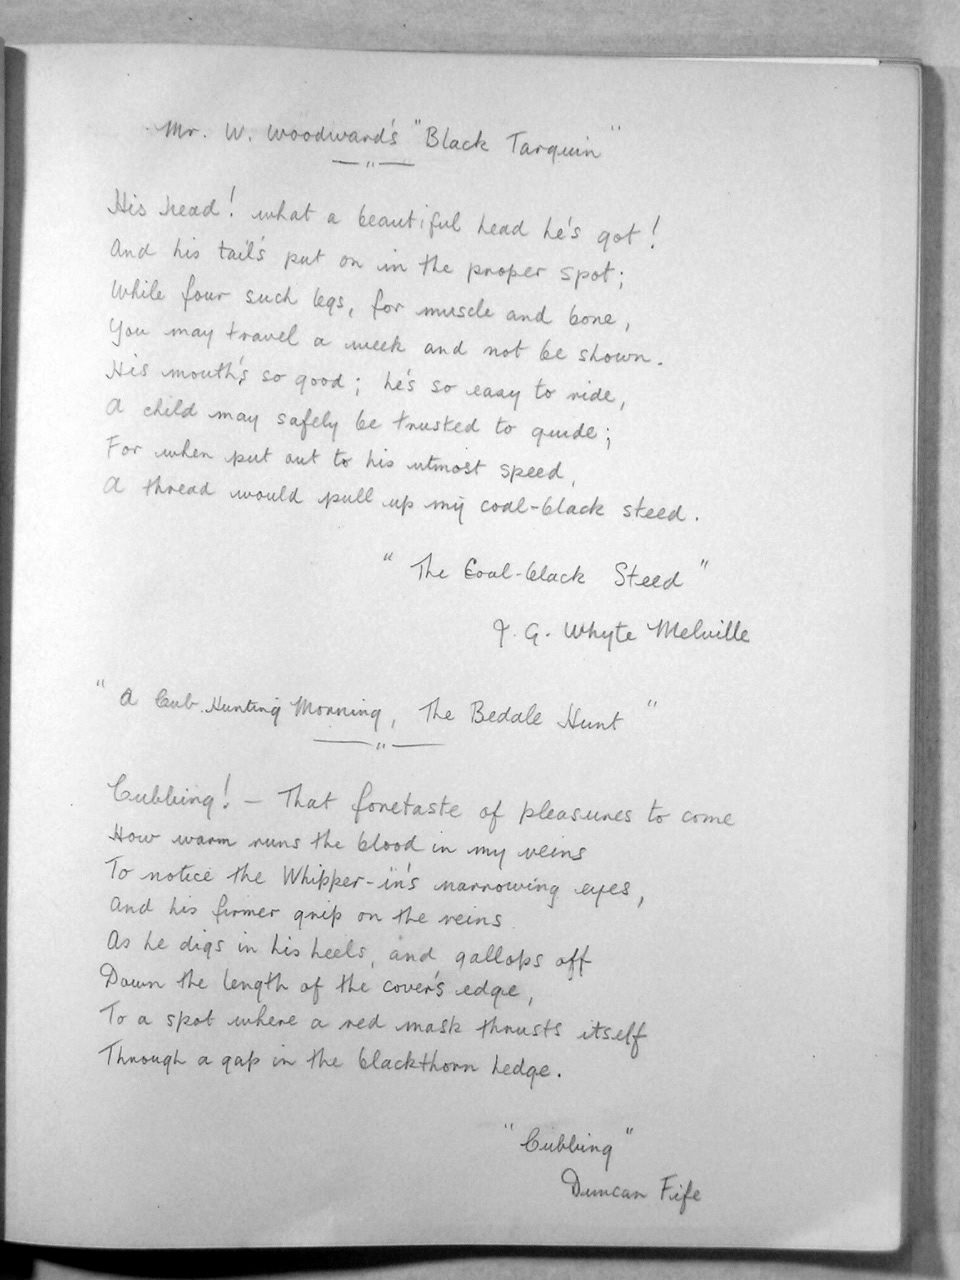 Mr. W. Woodward's "Black Tarquin"
His head! what a beautiful head he's got!
And his tail's put on in the proper spot;
While four such legs, for muscle and bone,
You may travel a week and not be shown.
His mouth's so good; he's so easy to ride,
A child may safely be trusted to guide;
For when put out to his utmost speed,
A thread would pull up my coal-black steed.
"The Coal-black Steed"
J. G. Whyte Melville
"A Cub Hunting Morning, The Bedale Hunt"
Cubbing! - That foretaste of pleasures to come
How warm runs the blood in my veins
To notice the Whipper-in's narrowing eyes,
And his firmer grip on the reins
As he digs in his heels, and gallops off
Down the length of the cover's edge,
To a spot where a red mask thrusts itself
Through a gap in the blackthorn hedge.
"Cubbing"
Duncan Fife